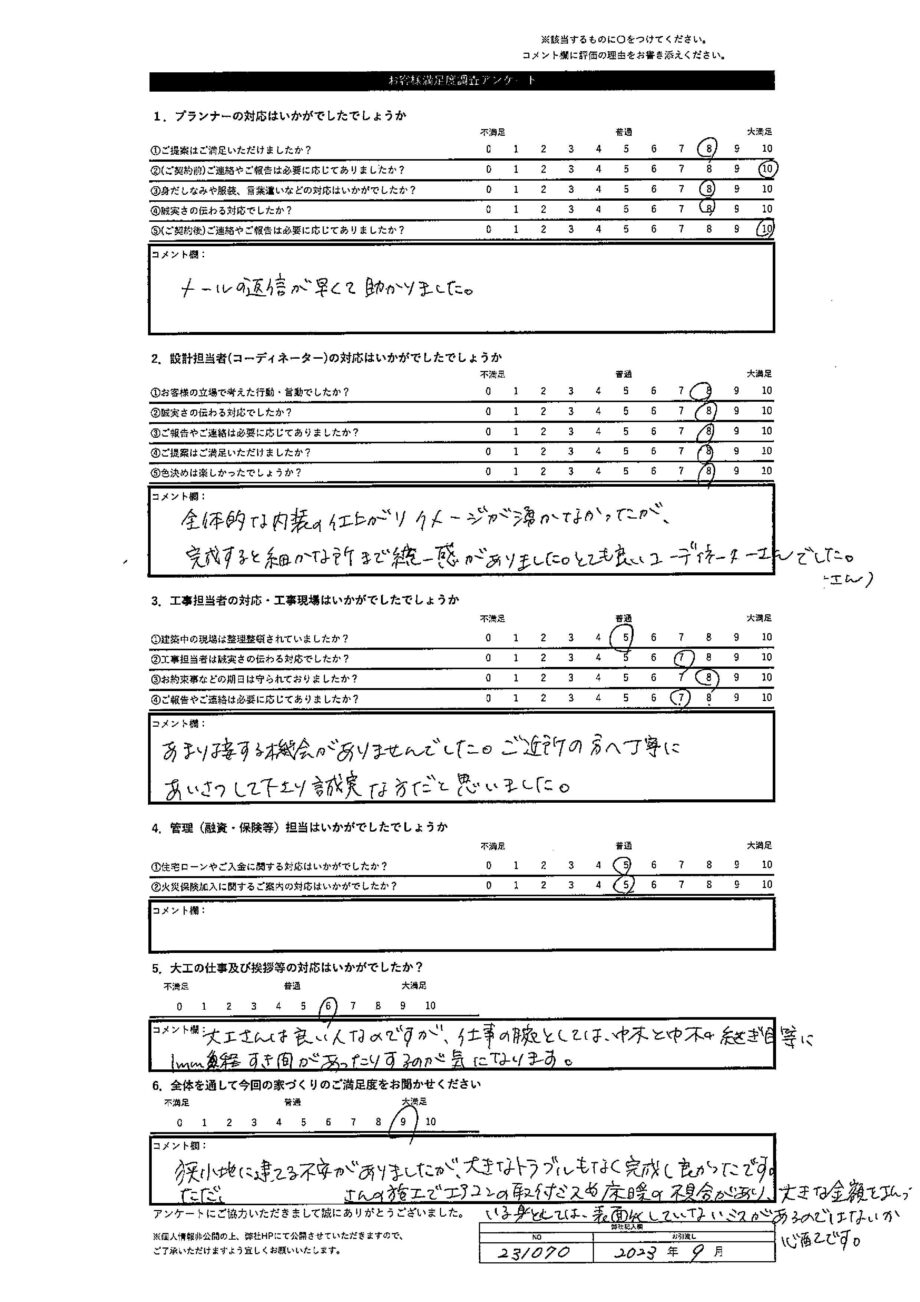 ※該当するものに〇をつけてください。
コメント欄に評価の理由をお書き添えください。
お客様満足度調査アンケート
1．プランナーの対応はいかがでしたでしょうか
不満足 普通 大満足
①ご提案はご満足いただけましたか？ 0 1 2 3 4 5 6 7 8 9 10
②(ご契約前)ご連絡やご報告は必要に応じてありましたか？ 0 1 2 3 4 5 6 7 8 9 10
③身だしなみや服装、言葉遣いなどの対応はいかがでしたか？ 0 1 2 3 4 5 6 7 8 9 10
④誠実さの伝わる対応でしたか？ 0 1 2 3 4 5 6 7 8 9 10
⑤(ご契約後)ご連絡やご報告は必要に応じてありましたか？ 0 1 2 3 4 5 6 7 8 9 10
コメント欄：
メールの返信が早くて助かりました。
2．設計担当者(コーディネーター)の対応はいかがでしたでしょうか
不満足 普通 大満足
①お客様の立場で考えた行動・言動でしたか？ 0 1 2 3 4 5 6 7 8 9 10
②誠実さの伝わる対応でしたか？ 0 1 2 3 4 5 6 7 8 9 10
③ご報告やご連絡は必要に応じてありましたか？ 0 1 2 3 4 5 6 7 8 9 10
④ご提案はご満足いただけましたか？ 0 1 2 3 4 5 6 7 8 9 10
⑤色決めは楽しかったでしょうか？ 0 1 2 3 4 5 6 7 8 9 10
コメント欄：
全体的な内装の仕上がりイメージが湧かなかったが、
完成すると細かな所まで統一感がありました。とても良いコーディネーターさんでした。
さん）
3．工事担当者の対応・工事現場はいかがでしたでしょうか
不満足 普通 大満足
①建築中の現場は整理整頓されていましたか？ 0 1 2 3 4 5 6 7 8 9 10
②工事担当者は誠実さの伝わる対応でしたか？ 0 1 2 3 4 5 6 7 8 9 10
③お約束事などの期日は守られておりましたか？ 0 1 2 3 4 5 6 7 8 9 10
④ご報告やご連絡は必要に応じてありましたか？ 0 1 2 3 4 5 6 7 8 9 10
コメント欄：
あまり接する機会がありませんでした。ご近所の方へ丁寧に
あいさつして下さり誠実な方だと思いました。
4．管理（融資・保険等）担当はいかがでしたでしょうか
不満足 普通 大満足
①住宅ローンやご入金に関する対応はいかがでしたか？ 0 1 2 3 4 5 6 7 8 9 10
②火災保険加入に関するご案内の対応はいかがでしたか？ 0 1 2 3 4 5 6 7 8 9 10
コメント欄：
5．大工の仕事及び挨拶等の対応はいかがでしたか？
不満足 普通 大満足
0 1 2 3 4 5 6 7 8 9 10
コメント欄：大工さんは良い人なのですが、仕事の腕としては、巾木と巾木の継ぎ目等に
1mm程すき間があったりするのが気になります。
6．全体を通して今回の家づくりのご満足度をお聞かせください
不満足 普通 大満足
0 1 2 3 4 5 6 7 8 9 10
コメント欄：
狭小地に建てる不安がありましたが、大きなトラブルもなく完成し良かったです。
ただ、 さんの施工でエアコンの取付ミスや床暖の不具合があり、大きな金額を払って
アンケートにご協力いただきまして誠にありがとうございました。
いる身としては、表面化していないミスがあるのではないか
心配です。
※個人情報非公開の上、弊社HPにて公開させていただきますので、
ご了承いただけますよう宜しくお願いいたします。
弊社記入欄
NO お引渡し
231070 2023 年 9 月